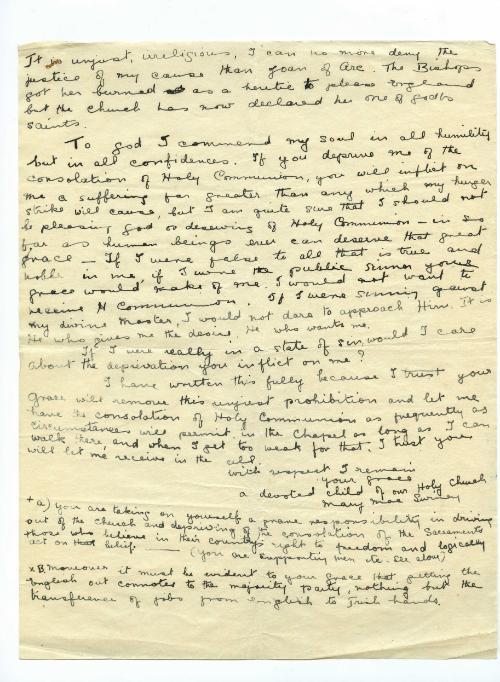 It is unjust, irreligious, I can no more deny the
justice of my cause than Joan of Arc. The Bishops
got her burned as a heretic to please England
but the Church has now declared her one of God's
saints.
To God I commend my soul in all humility
but in all confidences. If you deprive me of the
consolation of Holy Communion, you will inflict on
me a suffering far greater than any which my hunger
strike will cause, but I am quite sure that I should not
be pleasing God or deserving of Holy Communion - in so
far as human beings ever can deserve that great
grace - If I were false to all that is true and
noble in me, if I were the public sinner your
grace would make of me. I would not want to
receive H Communion. If I were sinning against
my divine Master, I would not dare to approach Him. It is
He who gives me the desire. He who wants me.
If I were really in a state of sin, would I care
about the deprivation you inflict on me?
I have written this fully because I trust your
Grace will remove this unjust prohibition and let me
have the consolation of Holy Communion as frequently as
circumstances will permit in the Chapel as long as I can
walk there, and when I get too weak for that, I trust you
will let me receive in the cell.
With respect I remain
your grace
a devoted child of our Holy Church
Mary MacSwiney
+ a) you are taking on yourself a grave responsibility in driving
out of the Church and depriving of the consolation of the Sacraments
those who believe in their country's right to freedom and logically
act on that belief. (you are supporting men etc. see above)
x B moreover it must be evident to your Grace that getting the
English out connotes to the majority party, nothing but the
transference of jobs from English to Irish hands.